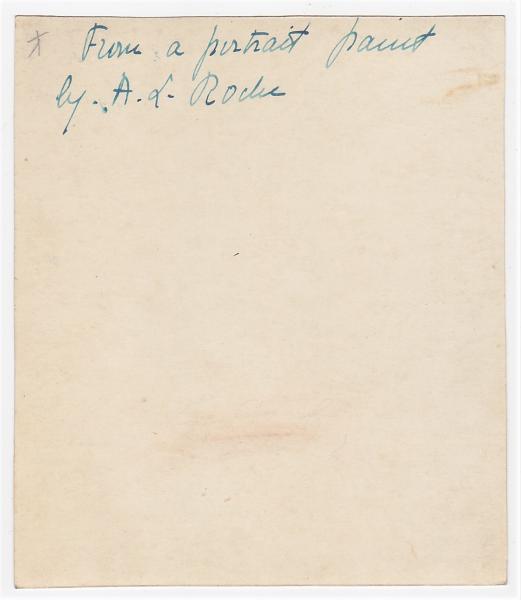 From a portrait paint
by. A. L. Roche